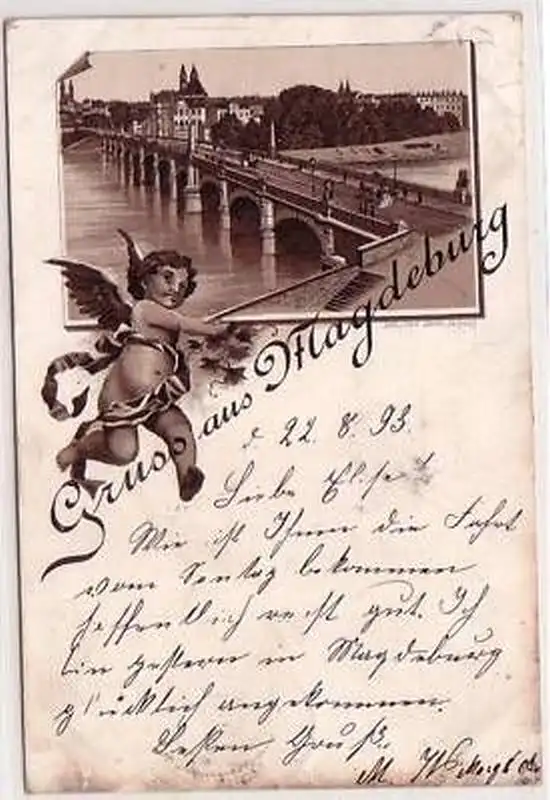 Gruss aus Magdeburg
d. 22. 8. 93.
Liebe Else!
Wie ist Ihnen die Fahrt
vom Sontag bekommen
hoffentlich recht gut. Ich
bin gestern in Magdeburg
glücklich angekommen.
Besten Gruß.
M.